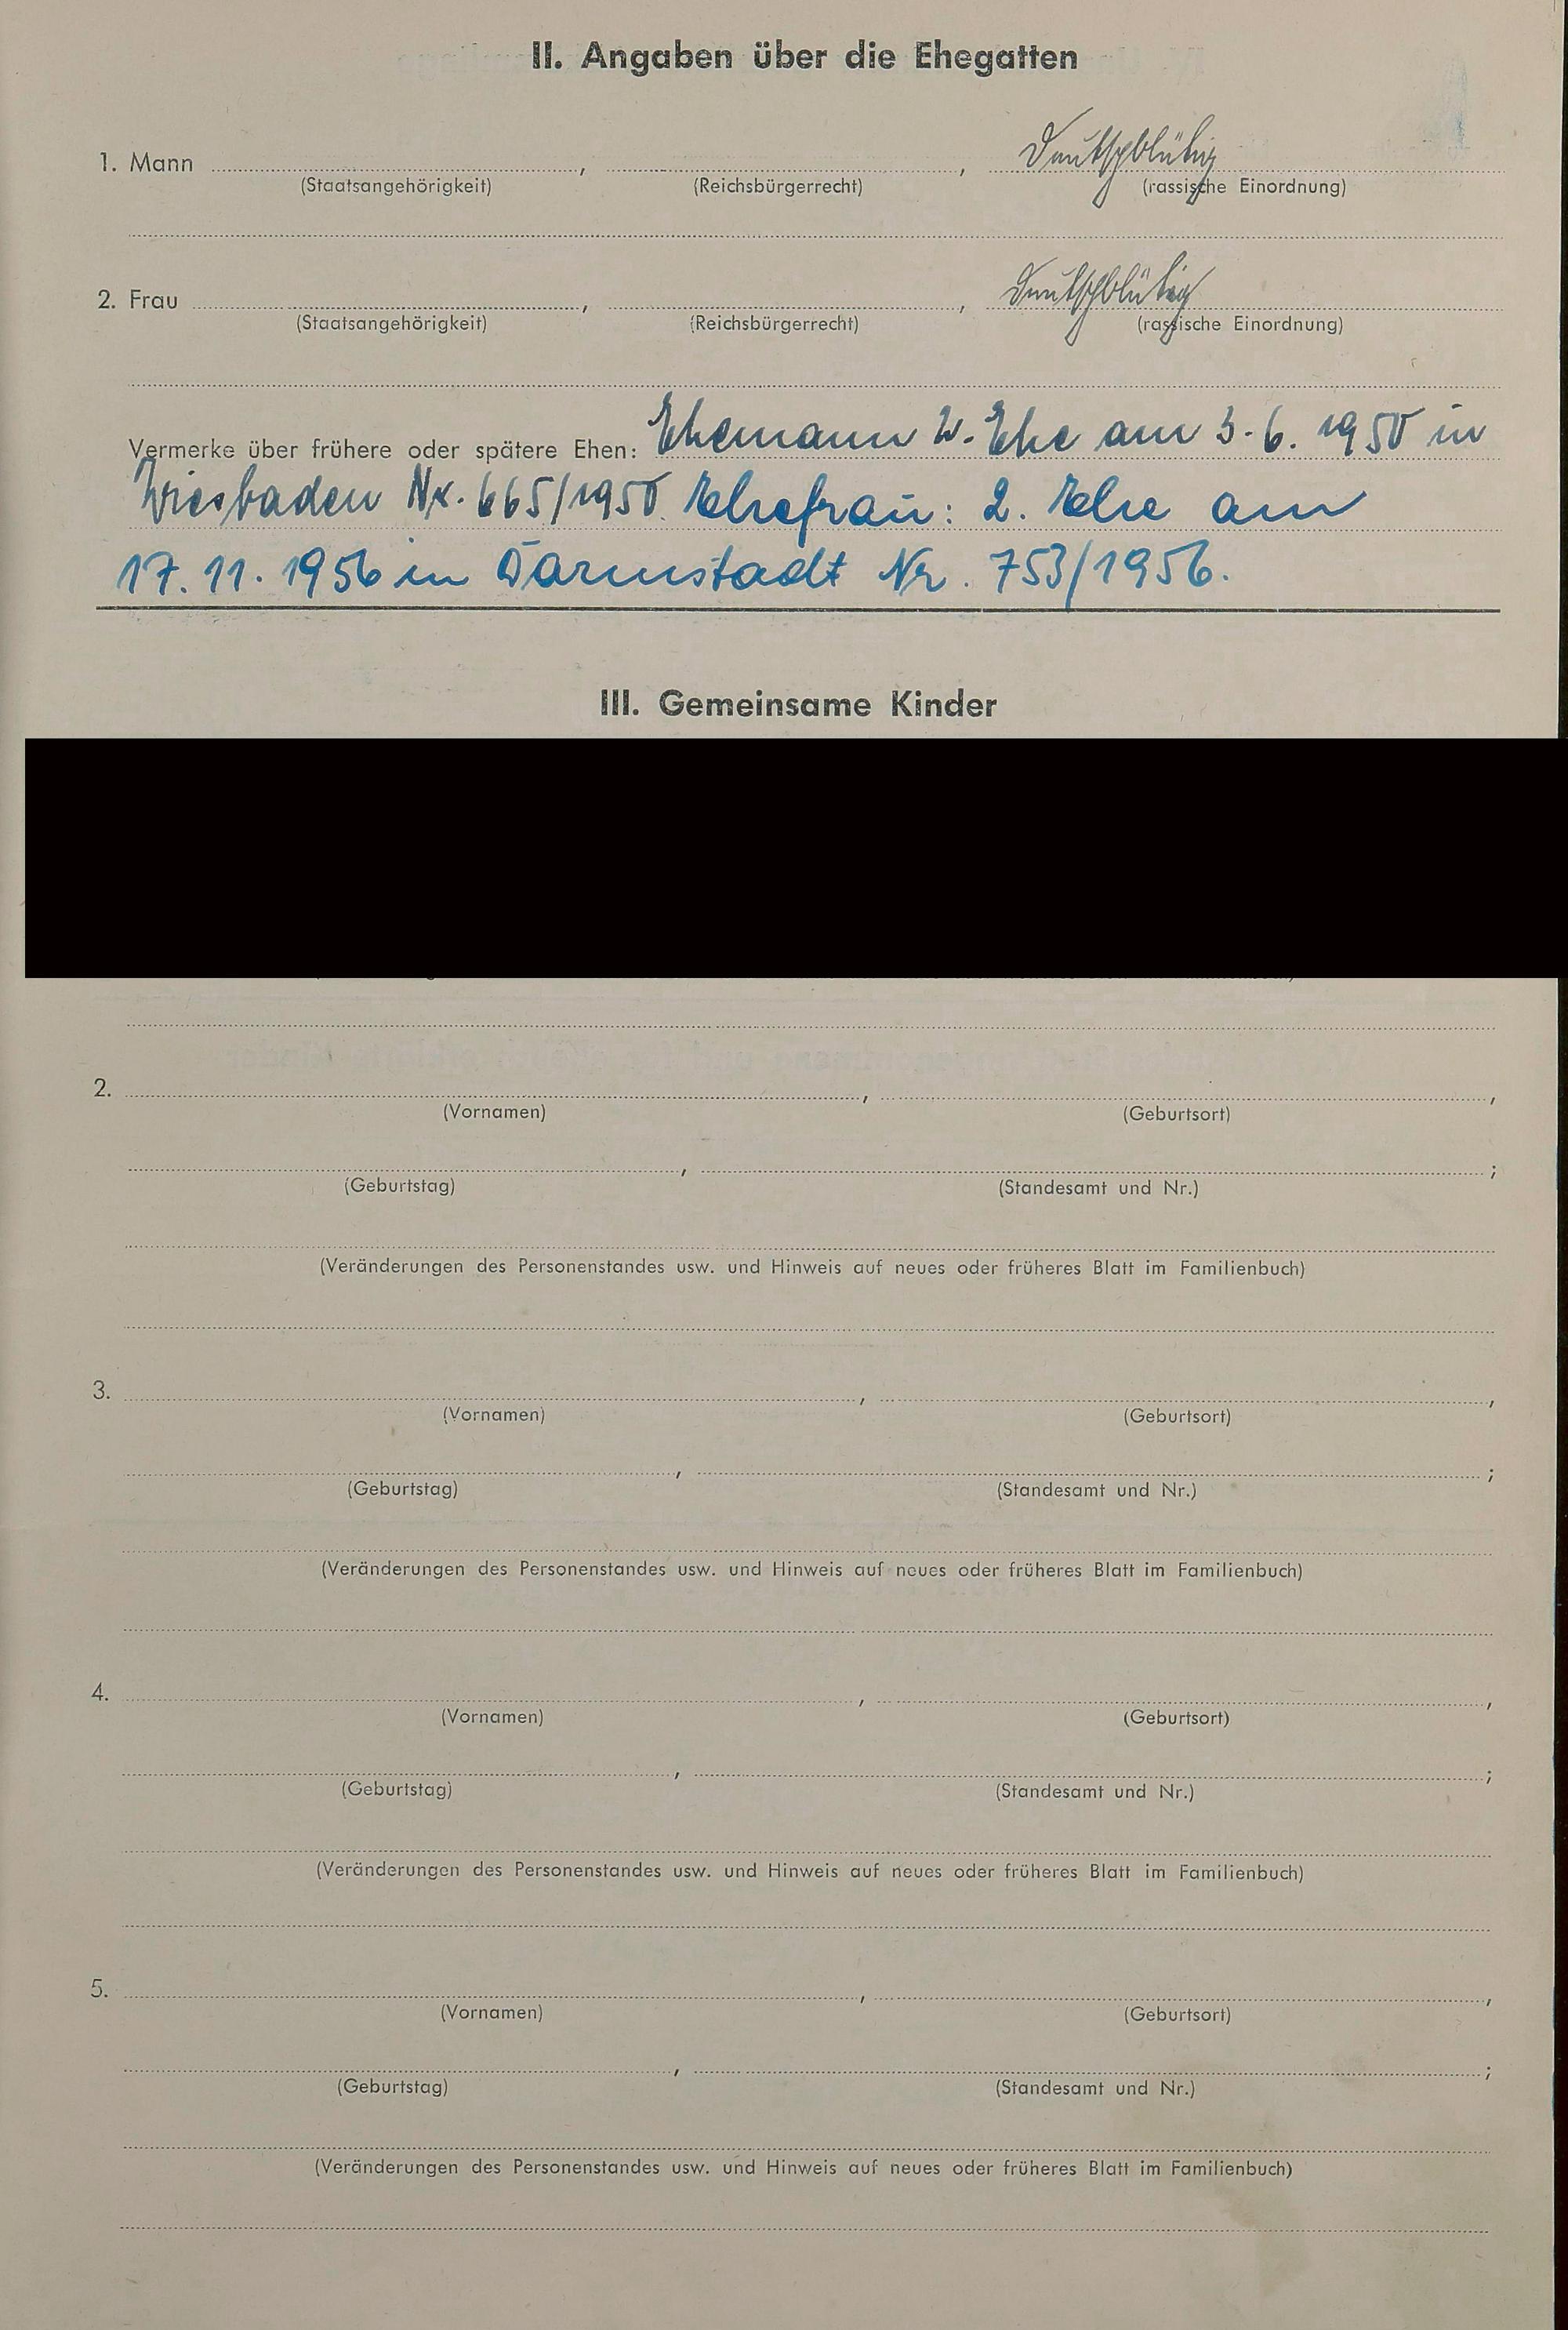 II. Angaben über die Ehegatten
1. Mann , , Deutschblütig
(Staatsangehörigkeit) (Reichsbürgerrecht) (rassische Einordnung)
2. Frau , , Deutschblütig
(Staatsangehörigkeit) (Reichsbürgerrecht) (rassische Einordnung)
Vermerke über frühere oder spätere Ehen: Ehemann 2. Ehe am 3. 6. 1950 in
Wiesbaden Nr. 665/1950. Ehefrau: 2. Ehe am
17. 11. 1956 in Darmstadt Nr. 753/1956.
III. Gemeinsame Kinder
2. , ,
(Vornamen) (Geburtsort)
, ;
(Geburtstag) (Standesamt und Nr.)
(Veränderungen des Personenstandes usw. und Hinweis auf neues oder früheres Blatt im Familienbuch)
3. , ,
(Vornamen) (Geburtsort)
, ;
(Geburtstag) (Standesamt und Nr.)
(Veränderungen des Personenstandes usw. und Hinweis auf neues oder früheres Blatt im Familienbuch)
4. , ,
(Vornamen) (Geburtsort)
, ;
(Geburtstag) (Standesamt und Nr.)
(Veränderungen des Personenstandes usw. und Hinweis auf neues oder früheres Blatt im Familienbuch)
5. , ,
(Vornamen) (Geburtsort)
, ;
(Geburtstag) (Standesamt und Nr.)
(Veränderungen des Personenstandes usw. und Hinweis auf neues oder früheres Blatt im Familienbuch)